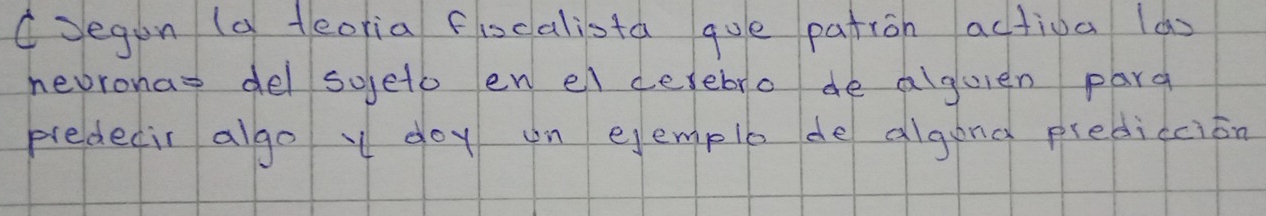 ¿Segun la teoria fiscalista que patrón activa las
neuronas del sujeto en el cerebro de alguien para
predecir algo y doy un ejemplo de alguna predicción